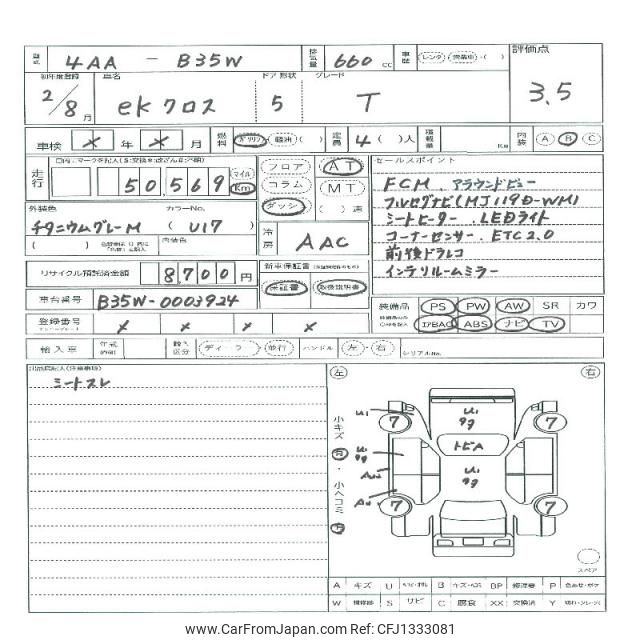 型式 4AA - B35W 排気量 660 cc 車歴 レンタ・営業車・( ) 評価点
初年度登録 車名 ドア 形状 グレード
2/8月 ekクロス 5 T 3.5
車検 × 年 × 月 燃料 ガソリン・軽油( ) 定員 4( )人 積載量 Kg 内装 A B C
走行 50,569 マイル Km フロア AT セールスポイント
コラム MT
ダッシ ( )速
外装色 カラーNo.
チタニウムグレーM ( U17 )
( ) 内装色
冷房 AAC
FCM. アラウンドビュー
フルセグナビ(MJ119D-WM)
シートヒーター. LEDライト
コーナーセンサー. ETC2.0
前後ドラレコ
インテリルームミラー
リサイクル預託済金額 8,700円 新車保証書
保証書 取扱説明書
車台番号 B35W-0003924
装備品 PS PW AW SR カワ
エアBAG ABS ナビ TV
登録番号 × × × ×
輸入車 年式 輸入区分 ディーラー・並行 ハンドル 左・右 シリアルNo.
シートスレ
左 右
小キズ 有・小ヘコミ 有
U1 U1 99
7 7
トビA
U1 99
U1 99
7 7
スペア
A キズ U B キズ・ヘコミ BP 補修要 P 色あせ・ボケ
W 補修跡 S サビ C 腐食 XX 交換済 Y
www.CarFromJapan.com Stock No: CFJ1333081